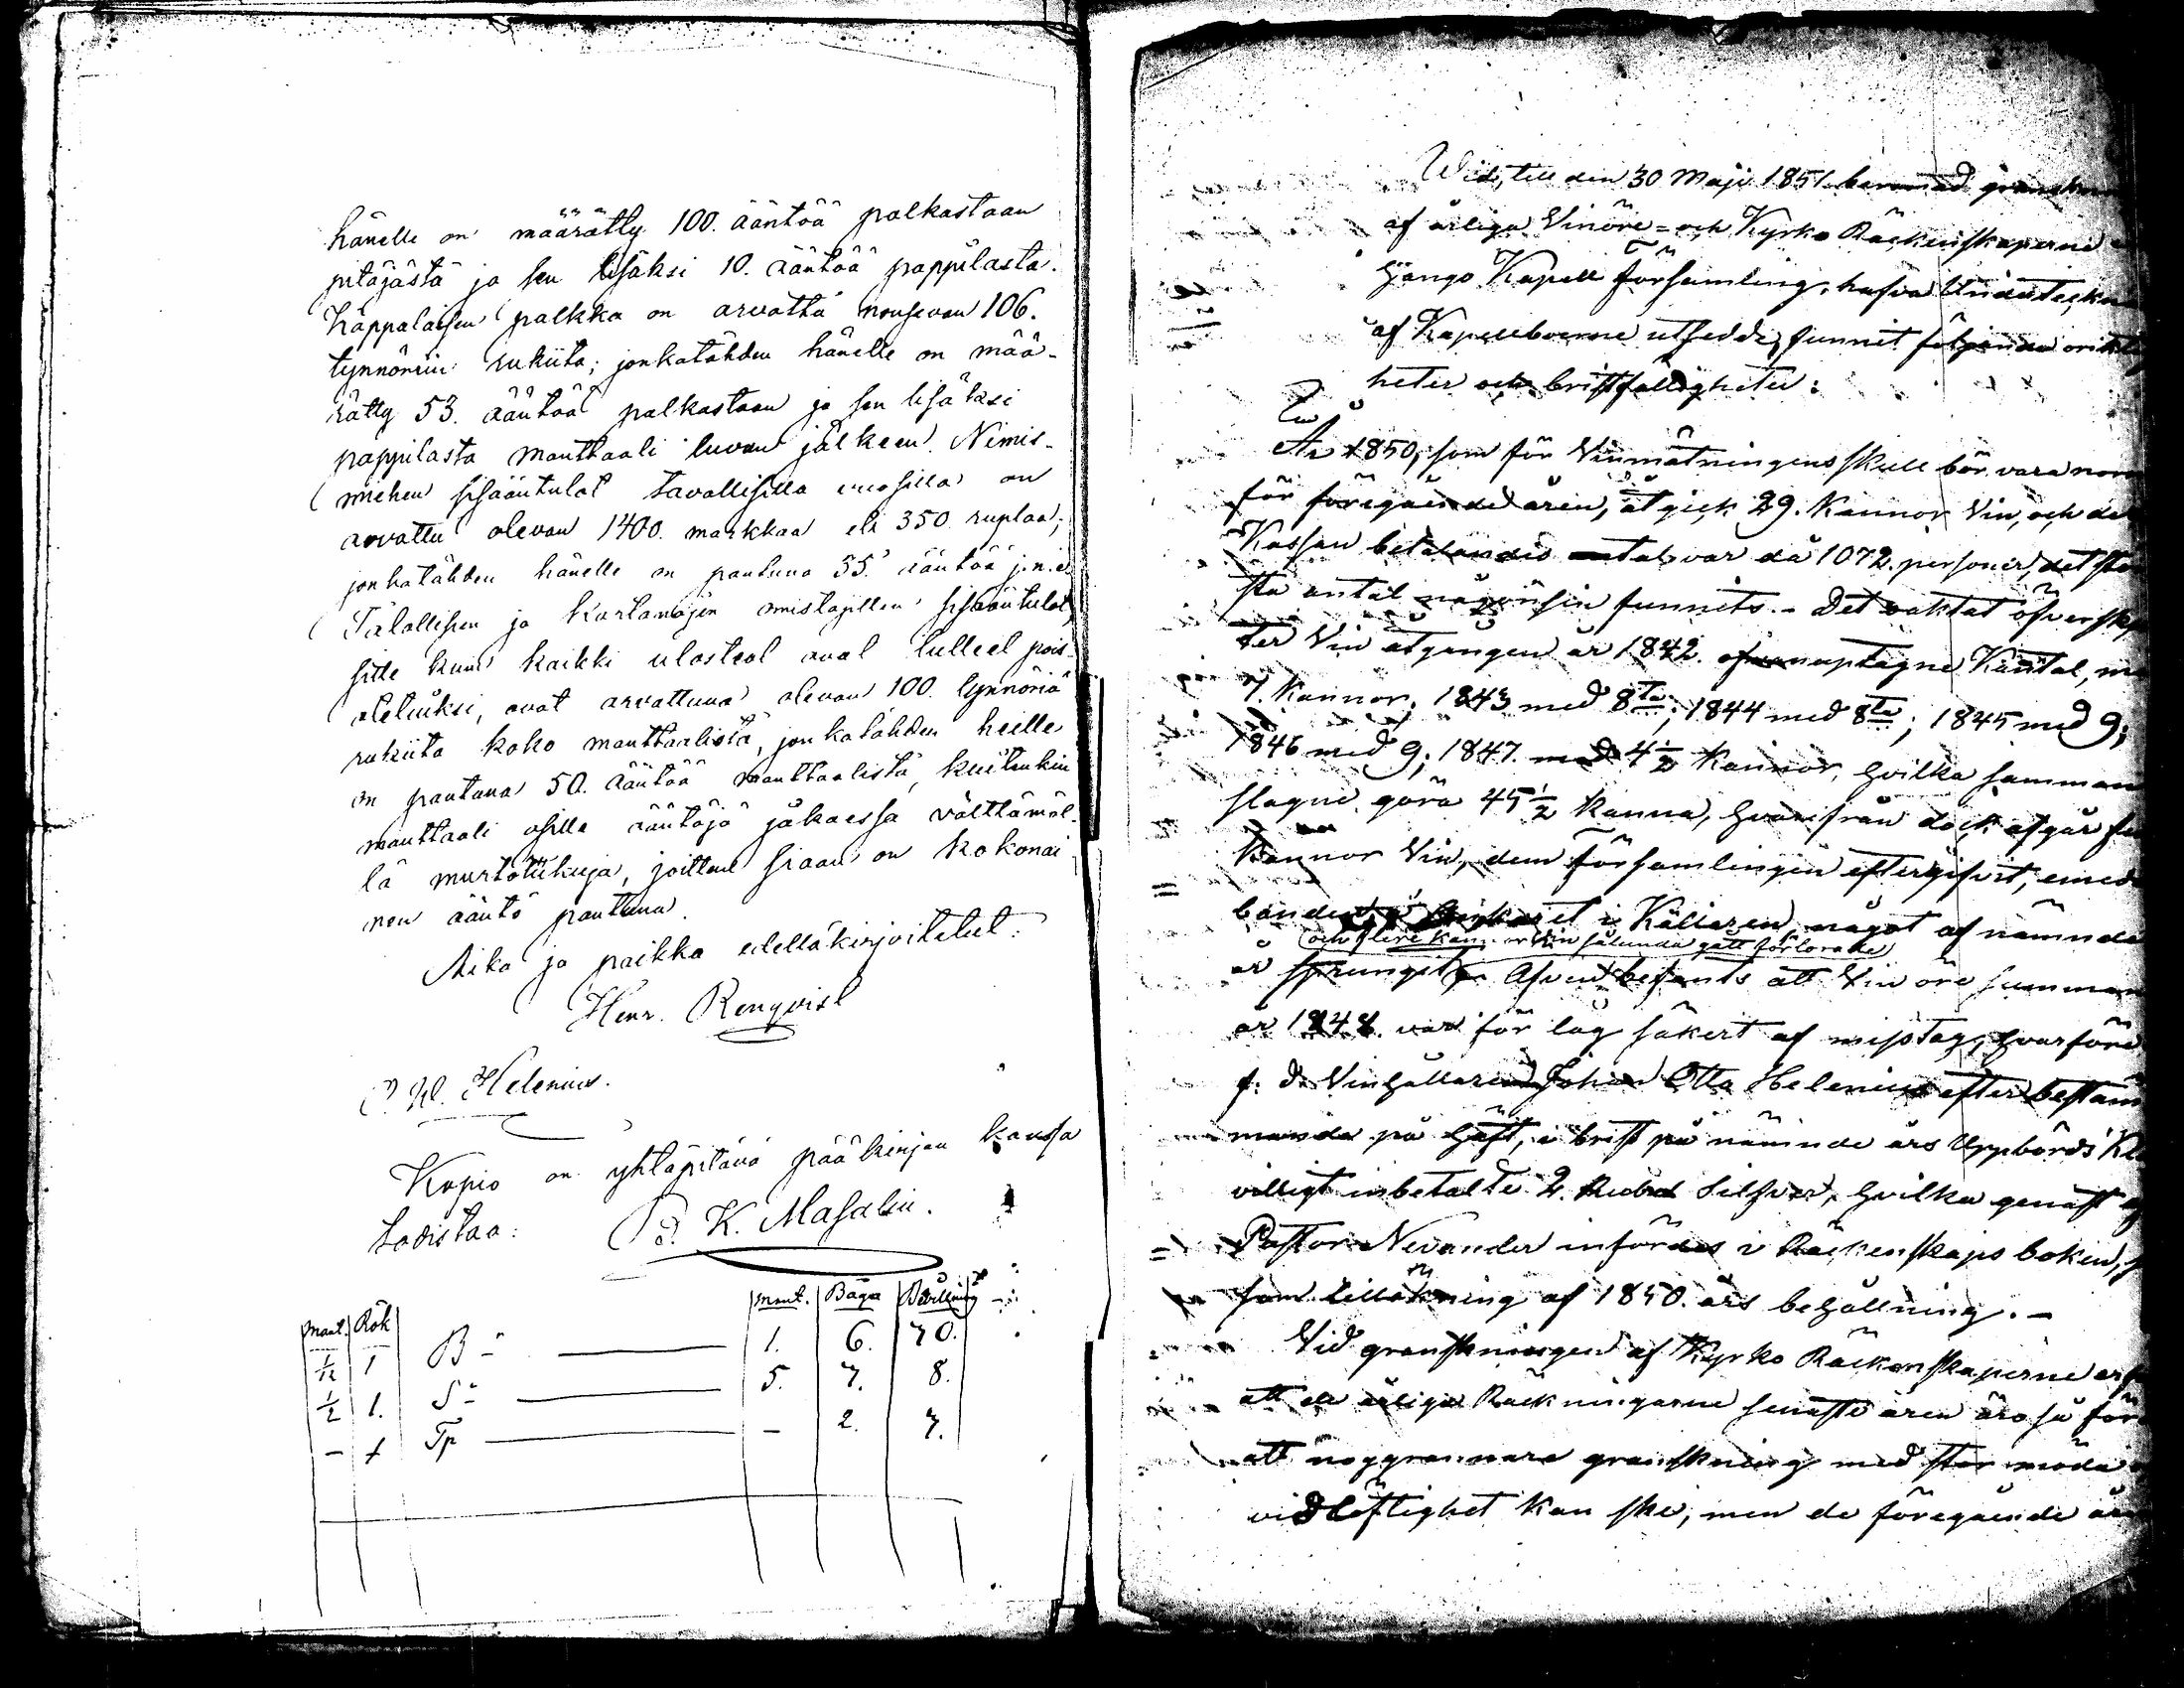 hänelle on määrätty 100. ääntöä palkastaan
pitäjästä ja sen lisäksi 10. ääntöä pappilasta.
Kappalaisen palkka on arvattu nousevan 106.
tynnöriin rukiita; jonkatähden hänelle on mää-
rätty 53. ääntöä palkastaan ja sen lisäksi
pappilasta manttaali luvun jälkeen. Nimis-
miehen sisääntulot tavallisilla vuosilla on
arvattu olevan 1400. markkaa eli 350. ruplaa;
jonkatähden hänelle on pantuna 35. ääntöä j.n.e.
Talollisten ja Kartanojen omistajitten sisääntulot,
sitte kuin kaikki ulosteot ovat tulleet pois-
otetuiksi, ovat arvattuna olevan 100. tynnöriä
rukiita koko manttaalista, jonkatähden heille
on pantuna 50. ääntöä manttaalista, kuitenkin
manttaali osille ääntöjä jakaessa välttämäl-
lä murtotiloja, joitten siaan on kokonai
nen ääntö pantuna.
Aika ja paikka edelläkirjoitetut:
Henr. Renqvist
W. Helenius.
Kopio on yhtäpitävä pääkirjan kanssa
todistaa: K. Masalin.
Mant. Rök mant. Båga Bevillning
1/12 1 B 1. 6. 70.
1/2 1. S 5. 7. 8.
- 1 Tp - 2. 7.
Wid, till den 30 Maji 1851
af årliga Vinöre= och Kyrko Räkenskaperne
Kapell Församling, hafva
af Kapellboerne utsedde, funnit följande
heter och bristfälligheter:
År 1850, som för Vinmätningens skull bör vara
för föregående åren, åtgick 29. Kannor Vin, och
Kassan betalandes antal var då 1072. personer, det
sta antal någonsin funnits. - Det
ter Vin åtgången år 1842. upptagne Kantal,
7. Kannor; 1843 med 8; 1844 med 8; 1845 med 9;
1846 med 9; 1847. med 4 1/2 Kannor, hvilka samman
slagne göra 45 1/2 Kanna, hvarifrån dock afgår
Kannor Vin, dem Församlingen eftergifvit,
i Källaren, något af nämnde
och flere vin sålunda gått förlorade
är sprungit. Äfven befants att Vin öre summan
år 1848. var för låg säkert af misstag, hvarföre
f. d. Vinhållaren Johan Otto Helenius efter
på häft, i brist på nämnde års Uppbörds
villigt inbetalte 2. Rubel Silfver, hvilka genast
Pastor Nevander infördes i Räkenskaps boken,
som tillökning af 1850. års behållning. -
Vid granskningen af Kyrko Räkenskaperne
att de årliga Räkningarne senaste åren äro så
att noggrannare granskning med stor möda
vidlöftighet kan ske; men de föregående